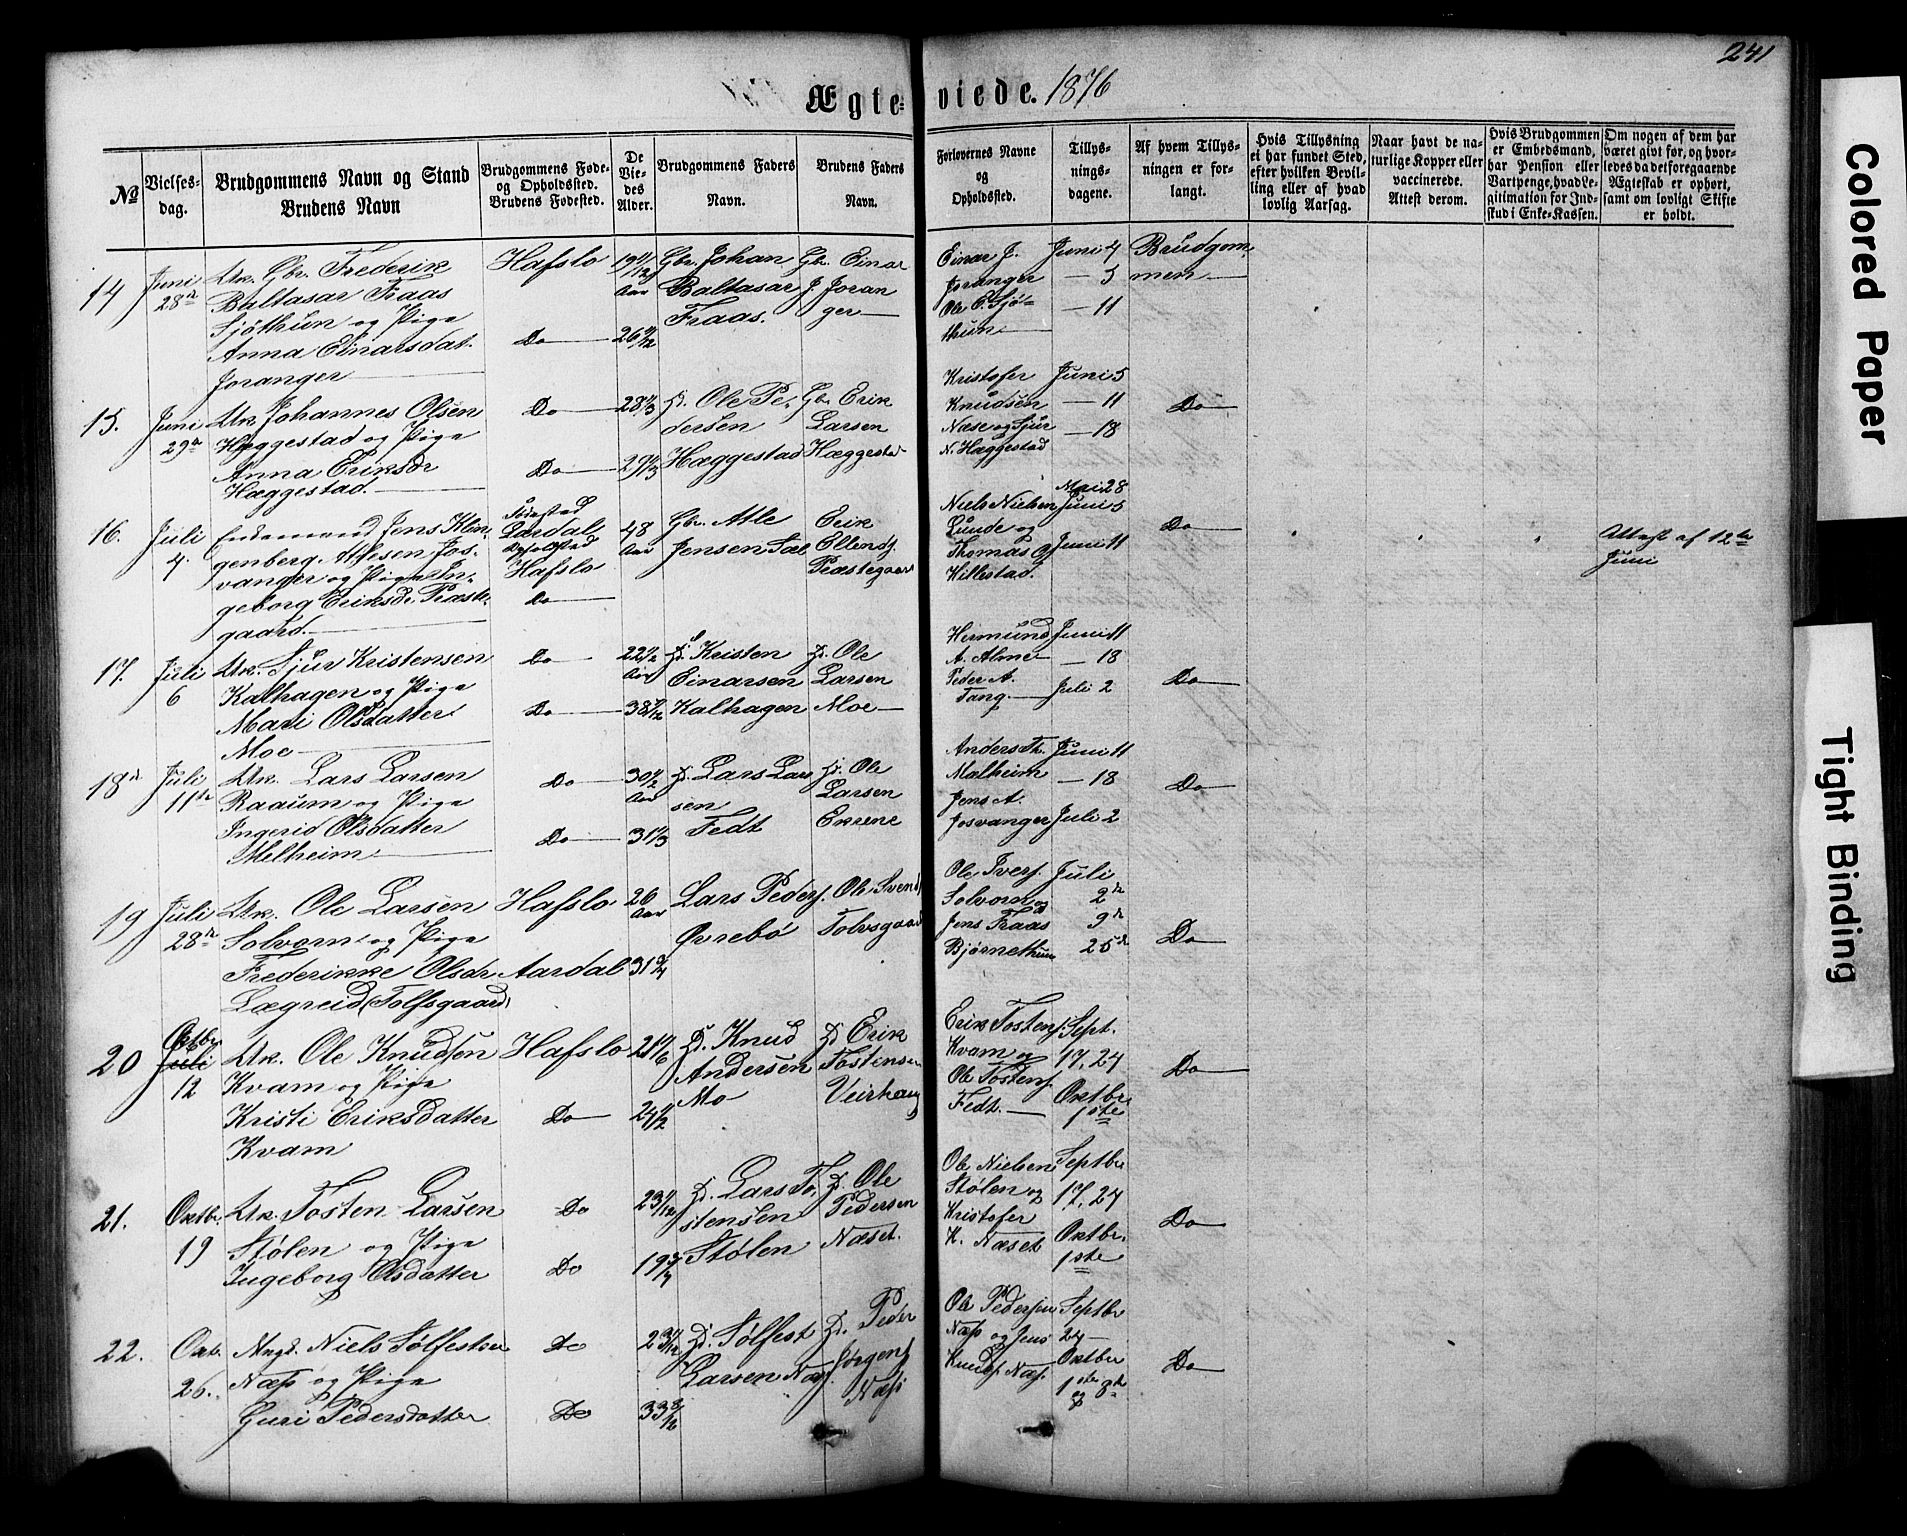 241
Ægte-viede. 1876
No
Vielses-
dag.
Brudgommens Navn og Stand
Brudens Navn
Brudgommens Føde-
og Opholdssted.
Brudens Fødested.
De
Vie-
des
Alder.
Brudgommens Faders
Navn.
Brudens Faders
Navn.
Forlovernes Navne
og
Opholdssted.
Tillys-
nings-
dagene.
Af hvem Tillys-
ningen er for-
langt.
Hvis Tillysning
ei har fundet Sted,
efter hvilken Bevil-
ling eller af hvad
lovlig Aarsag.
Naar havt de na-
turlige Kopper eller
vaccinerede.
Attest derom.
Hvis Brudgommen
er Embedsmand,
har Pension eller
Vartpenge, hvad Le-
gitimation for Ind-
skud i Enke-Kassen.
Om nogen af dem har
været givt før, og hvor-
ledes da det foregaaende
Ægteskab er ophørt,
samt om lovligt Skifte
er holdt.
14
Juni
28de
Uk. Gbr. Frederik
Baltasar Fraas
Sjøthun og Pige
Anna Einarsdat.
Joranger
Hafslo
Do
19 11/12
Aar
Gbr. Johan
Baltasar
Fraas.
Gb. Einar
J. Joran
ger
Einar J.
Joranger
Ole E. Sjø-
thun
Juni 4
— 5
— 11
Brudgom
men
15.
Juni
29de
Uk. Johannes Olsen
Hæggestad og Pige
Anna Eriksdr
Hæggestad.
Do
Do
Ole Pe-
dersen
Hæggestad
Gbr. Erik
Larsen
Hæggestad
Kristofer
Knudsen
Næse og Sjur
N. Hæggestad
Juni 5
— 11
— 18
Do
16.
Juli
4.
Enkemand Jens Klin-
genberg Atlesen Jos-
vanger og Pige In-
geborg Eriksdr. Præste-
gaard.
Fødested
Lærdal
Hafslo
Do
48
Aar
Gbr. Atle
Jensen
Erik
Ellends.
Præstegaard
Niels Nielsen
Lunde og
Thomas
Hillestad.
Mai 28
Juni 5
Juni 11
Do
Attest af 12te
Juni
17.
Juli
6
Uk. Sjur Kristensen
Kalhagen og Pige
Mari Olsdatter
Moe
Do
Do
Aar
38 7/12
Kristen
Einarsen
Kalhagen
Ole
Larsen
Moe
Hermund
A. Alme
Peder A.
Tang.
Juni 11
— 18
Juli 2
Do
18de
Juli
11te
Uk. Lars Larsen
Raaum og Pige
Ingerid Olsdatter
Melheim
Do
Do
30 1/2
Aar
31 1/3
Lars Lar
sen
Fedt
Ole
Larsen
Ekrene
Anders Th.
Malheim
Jens A.
Josvanger
Juni 11
— 18
Juli 2
Do
19
Juli
28de
Uk. Ole Larsen
Solvorn og Pige
Frederikke Olsdr
Lægreid (Tolfsgaard)
Hafslo
Aardal
26
Aar
Lars Peders.
Øvrebø
Ole Svend
Tolvsgaard
Ole Ivers.
Solvorn og
Jens Fraas
Bjørnethun
Juli
2de
9de
25de
Do
20
Oktbr
Juli
12
Uk. Ole Knudsen
Kvam og Pige
Kristi Eriksdatter
Kvam
Hafslo
Do
21 1/6
24 1/2
Knud
Andersen
Mo
Erik
Tostensen
Veirhaug
Erik Tostens.
Kvam og
Ole Tostens.
Fedt.
Sept.
17, 24
Oktbr
1ste
Do
21.
Oktbr.
19
Uk. Tosten Larsen
Stølen og Pige
Ingeborg Olsdatter
Do
Do
23 1/12
Lars To
stensen
Stølen
Ole
Pedersen
Næset.
Ole Nielsen
Stølen og
Kristofer
K. Næset
Septbr
17, 24
Oktbr.
1ste
Do
22.
Okt.
26.
Ungk. Niels Sølfestsen
Næss og Pige
Guri Pedersdatter
Do
Do
Sølfest
Larsen Næss
Peder
Jørgens.
Næss
Ole Pedersen
Næss og Jens
Knuds. Næss.
Septbr
24
Oktbr
1ste og 8de
Do
Colored Paper
Tight Binding